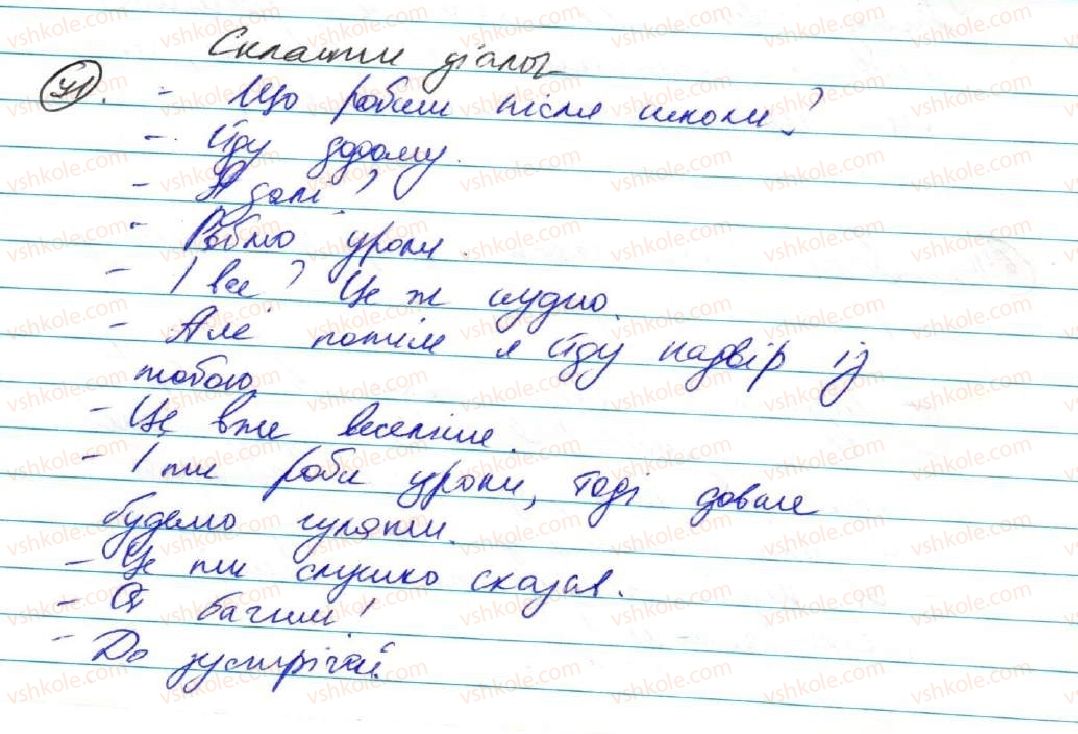 Скласти діалог
У.
- Що робиш після школи?
- Йду додому.
- А далі?
- Роблю уроки.
- І все? Це ж нудно.
- Але потім я йду надвір із
тобою.
- Це вже веселіше.
- І ти роби уроки, тоді довше
будемо гуляти.
- Це ти слушно сказав.
- От бачиш!
- До зустрічі.